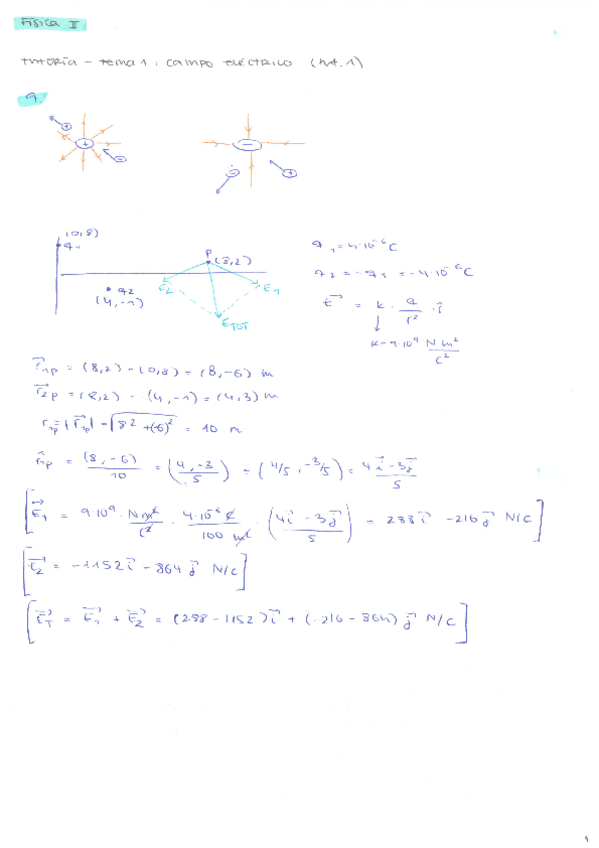 FÍSICA II
TUTORÍA - TEMA 1. CAMPO ELÉCTRICO (
9.
+ + -
- - +
(0,8)
q1
P (8,2)
q2
(4,-1)
E2
E1
ETOT
q1 = 4·10^-6 C
q2 = -q1 = -4·10^-6 C
E⃗ = k · q/r² · r̂
k = 9·10⁹ N m²/C²
r⃗1p = (8,2) - (0,8) = (8,-6) m
r⃗2p = (8,2) - (4,-1) = (4,3) m
r1p = |r⃗1p| = √(8² + (-6)²) = 10 m
r̂1p = (8,-6)/10 = (4,-3/5) = (4/5, -3/5) = 4i⃗ - 3j⃗/5
[E⃗1 = 9·10⁹ · N m²/C² · 4·10^-6 C/100 m² · (4i⃗ - 3j⃗/5) = 288 i⃗ - 216 j⃗ N/C]
[E⃗2 = -1152 i⃗ - 864 j⃗ N/C]
[E⃗T = E⃗1 + E⃗2 = (288 - 1152) i⃗ + (-216 - 864) j⃗ N/C]
1